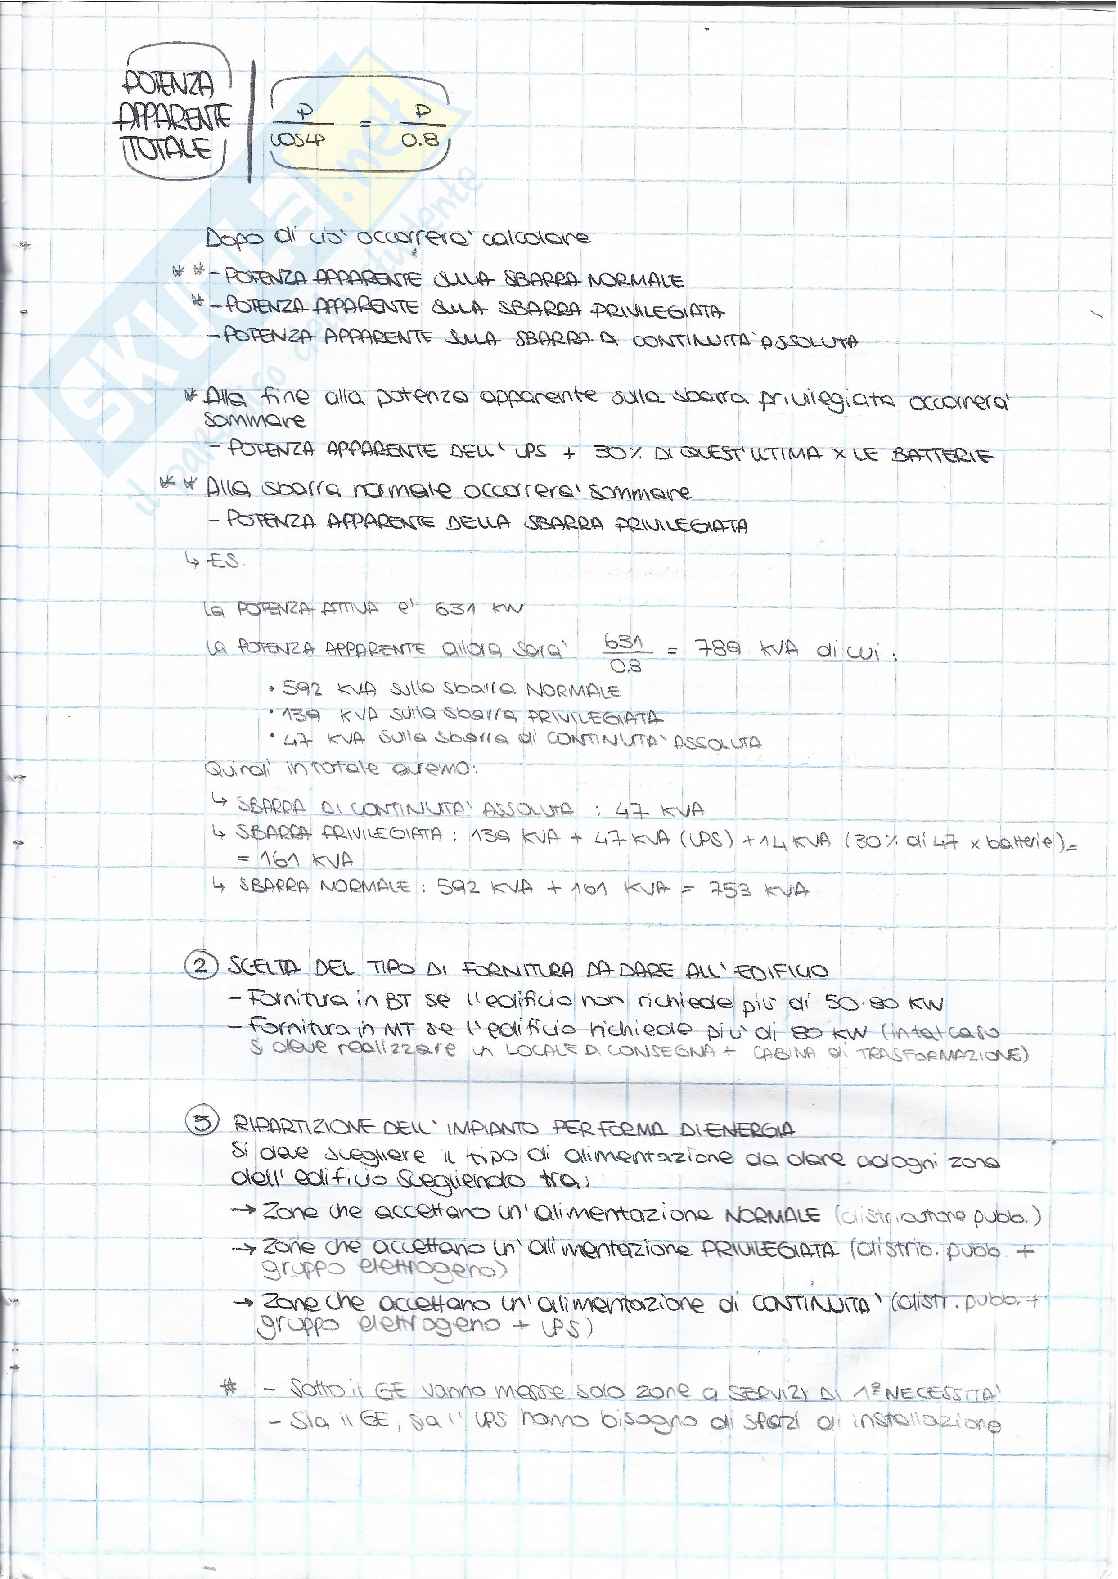 POTENZA
APPARENTE
TOTALE
P / cosφ = P / 0.8
Dopo di ciò occorrerà calcolare
** - POTENZA APPARENTE SULLA SBARRA NORMALE
* - POTENZA APPARENTE SULLA SBARRA PRIVILEGIATA
- POTENZA APPARENTE SULLA SBARRA DI CONTINUITÀ ASSOLUTA
* Alla fine alla potenza apparente sulla sbarra privilegiata occorrerà
sommare
- POTENZA APPARENTE DELL'UPS + 30% DI QUEST'ULTIMA x LE BATTERIE
** Alla sbarra normale occorrerà sommare
- POTENZA APPARENTE DELLA SBARRA PRIVILEGIATA
↳ ES.
La POTENZA ATTIVA è 631 KW
La POTENZA APPARENTE allora sarà 631 / 0.8 = 789 KVA di cui:
• 592 KVA sulla sbarra NORMALE
• 139 KVA sulla sbarra PRIVILEGIATA
• 47 KVA sulla sbarra di CONTINUITÀ ASSOLUTA
Quindi in totale avremo:
↳ SBARRA DI CONTINUITÀ ASSOLUTA : 47 KVA
↳ SBARRA PRIVILEGIATA : 139 KVA + 47 KVA (UPS) + 14 KVA (30% di 47 x batterie) =
= 161 KVA
↳ SBARRA NORMALE : 592 KVA + 161 KVA = 753 KVA
② SCELTA DEL TIPO DI FORNITURA DA DARE ALL'EDIFICIO
- Fornitura in BT se l'edificio non richiede più di 50-80 KW
- Fornitura in MT se l'edificio richiede più di 80 KW (in tal caso
si deve realizzare un LOCALE DI CONSEGNA + CABINA di TRASFORMAZIONE)
③ RIPARTIZIONE DELL'IMPIANTO PER FORMA DI ENERGIA
Si deve scegliere il tipo di alimentazione da dare ad ogni zona
dell'edificio scegliendo tra:
→ Zone che accettano un'alimentazione NORMALE (distributore pubb.)
→ Zone che accettano un'alimentazione PRIVILEGIATA (distrib. pubb. +
gruppo elettrogeno)
→ Zone che accettano un'alimentazione di CONTINUITÀ (distr. pubb. +
gruppo elettrogeno + UPS)
# - Sotto il GE vanno messe solo zone a SERVIZI DI 1ª NECESSITÀ
- Sia il GE, sia l'UPS hanno bisogno di spazi di installazione
SKUOLA.net